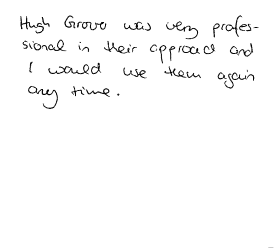 Hugh Grove was very profes-
sional in their approach and
I would use them again
any time.